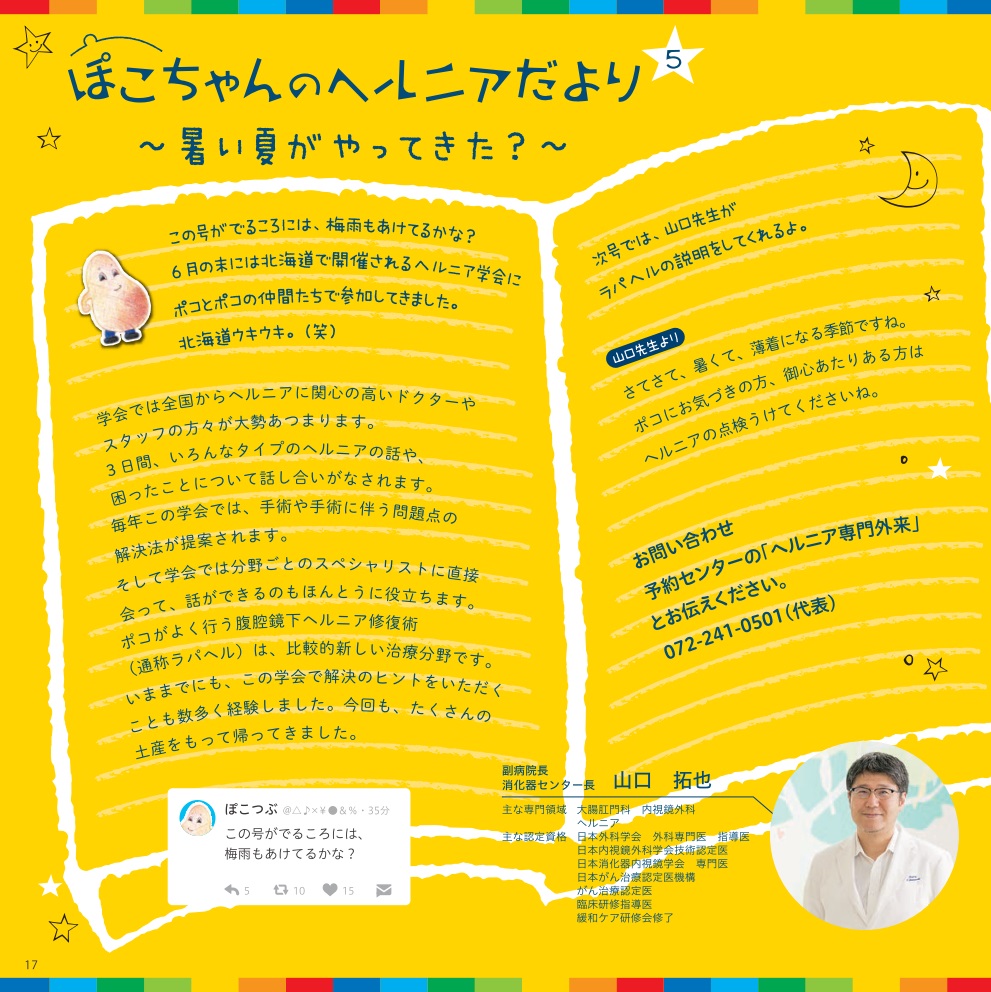 ぽこちゃんのヘルニアだより
5
～暑い夏がやってきた？～
この号がでるころには、梅雨もあけてるかな？
６月の末には北海道で開催されるヘルニア学会に
ポコとポコの仲間たちで参加してきました。
北海道ウキウキ。（笑）
学会では全国からヘルニアに関心の高いドクターや
スタッフの方々が大勢あつまります。
３日間、いろんなタイプのヘルニアの話や、
困ったことについて話し合いがなされます。
毎年この学会では、手術や手術に伴う問題点の
解決法が提案されます。
そして学会では分野ごとのスペシャリストに直接
会って、話ができるのもほんとうに役立ちます。
ポコがよく行う腹腔鏡下ヘルニア修復術
（通称ラパヘル）は、比較的新しい治療分野です。
いままでにも、この学会で解決のヒントをいただく
ことも数多く経験しました。今回も、たくさんの
土産をもって帰ってきました。
ぽこつぶ @△♪×￥●＆％・35分
この号がでるころには、
梅雨もあけてるかな？
5 10 15
次号では、山口先生が
ラパヘルの説明をしてくれるよ。
山口先生より
さてさて、暑くて、薄着になる季節ですね。
ポコにお気づきの方、御心あたりある方は
ヘルニアの点検うけてくださいね。
お問い合わせ
予約センターの「ヘルニア専門外来」
とお伝えください。
072-241-0501（代表）
副病院長
消化器センター長　山口　拓也
主な専門領域　大腸肛門科　内視鏡外科
ヘルニア
主な認定資格　日本外科学会　外科専門医　指導医
日本内視鏡外科学会技術認定医
日本消化器内視鏡学会　専門医
日本がん治療認定医機構
がん治療認定医
臨床研修指導医
緩和ケア研修会修了
17